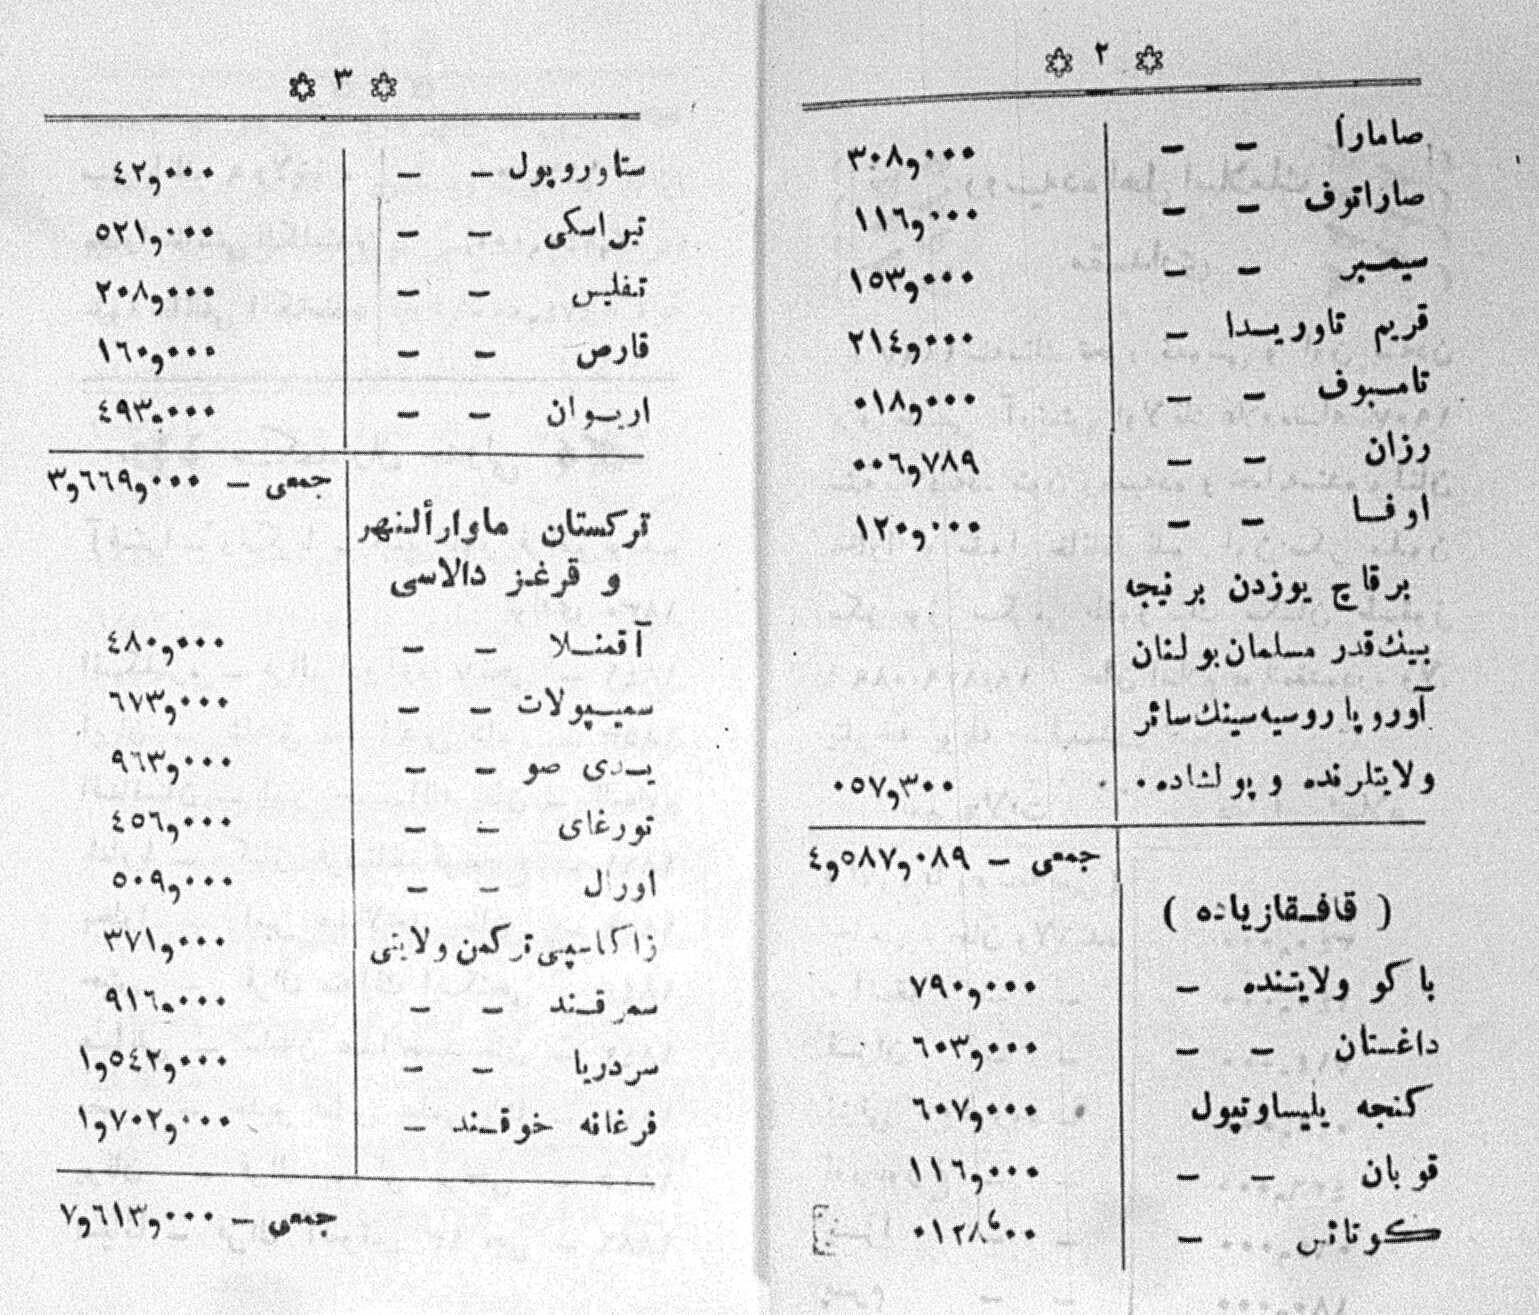 ٢
صامارا — — ٣٠٨,٠٠٠
صاراتوف — — ١١٦,٠٠٠
سیمبر — — ١٥٣,٠٠٠
قریم تاوریدا — ٢١٤,٠٠٠
تامبوف — — ٠١٨,٠٠٠
رزان — — ٠٠٦,٧٨٩
اوفا — — ١٢٠,٠٠٠
برقاچ یوزدن برنیجه
بیك قدر مسلمان بولنان
آوروپا روسیه سینك سائر
ولایتلرنده و پولشاده ٠٥٧,٣٠٠
جمعی — ٤,٥٨٧,٠٨٩
( قافقازیاده )
باکو ولایتنده — ٧٩٠,٠٠٠
داغستان — — ٦٠٣,٠٠٠
کنجه یلیساوتپول ٦٠٧,٠٠٠
قوبان — — ١١٦,٠٠٠
کوتائس — ٠١٢٨٬٠٠
٣
ستاوروپول — — ٤٢,٠٠٠
تیراسکی — — ٥٢١,٠٠٠
تفلیس — — ٢٠٨,٠٠٠
قارص — — ١٦٠,٠٠٠
اریوان — — ٤٩٣,٠٠٠
جمعی — ٣,٦٦٩,٠٠٠
ترکستان ماوارألنهر
و قرغز دالاسی
آقمنلا — — ٤٨٠,٠٠٠
سمیپولات — — ٦٧٣,٠٠٠
یدی صو — — ٩٦٣,٠٠٠
تورغای — — ٤٥٦,٠٠٠
اورال — — ٥٠٩,٠٠٠
زاکاسپی ترکمن ولایتی ٣٧١,٠٠٠
سمرقند — — ٩١٦,٠٠٠
سردریا — — ١,٥٤٢,٠٠٠
فرغانه خوقند — ١,٧٠٢,٠٠٠
جمعی — ٧,٦١٣,٠٠٠